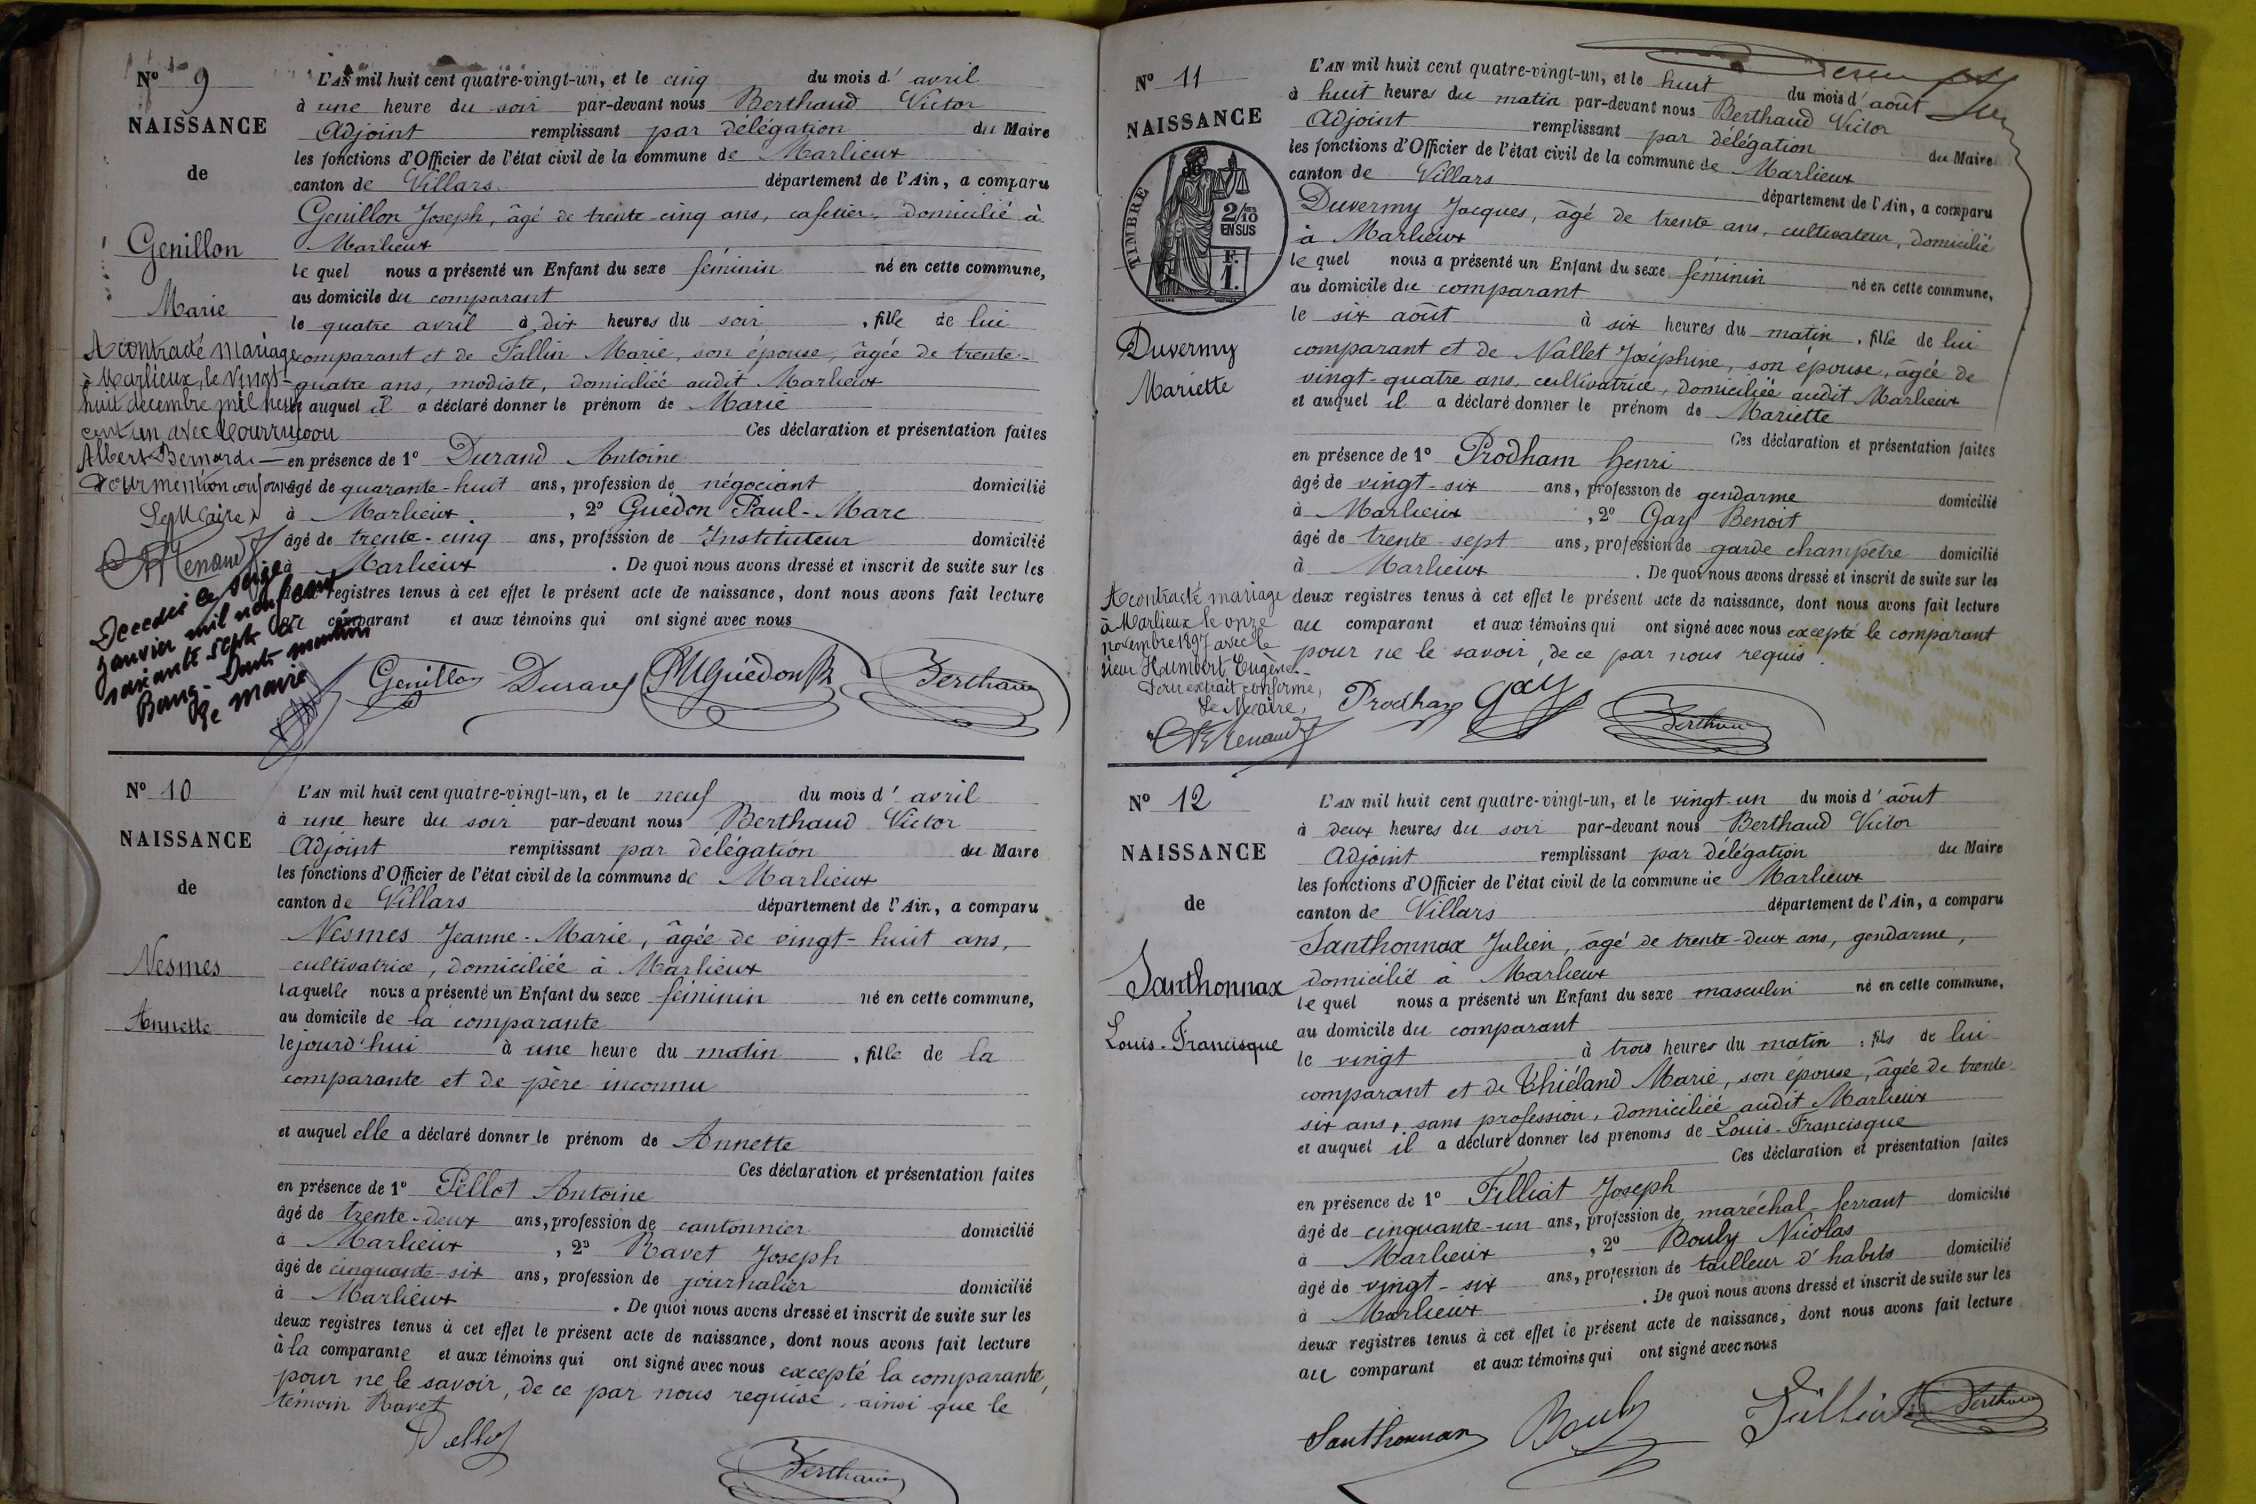 N° 9
NAISSANCE
de
Genillon
Marie
A contracté mariage
à Marlieux, le vingt-
huit décembre mil neuf
cent un avec
Albert Bernard
Pour mention conforme
Le Maire,
Renaud
Décédée le seize
janvier mil neuf cent
soixante sept à
Bourg. Dont mention
Le maire
L'AN mil huit cent quatre-vingt-un, et le cinq du mois d'avril
à une heure du soir par-devant nous Berthaud Victor
Adjoint remplissant par délégation du Maire
les fonctions d'Officier de l'état civil de la commune de Marlieux
canton de Villars département de l'Ain, a comparu
Genillon Joseph, âgé de trente-cinq ans, cafetier, domicilié à
Marlieux
lequel nous a présenté un Enfant du sexe féminin né en cette commune,
au domicile du comparant
le quatre avril à dix heures du soir, fille de lui
comparant et de Fallin Marie, son épouse, âgée de trente-
quatre ans, modiste, domiciliée audit Marlieux
et auquel il a déclaré donner le prénom de Marie
Ces déclaration et présentation faites
en présence de 1° Durand Antoine
âgé de quarante-huit ans, profession de négociant domicilié
à Marlieux, 2° Guédon Paul-Marc
âgé de trente-cinq ans, profession de Instituteur domicilié
à Marlieux. De quoi nous avons dressé et inscrit de suite sur les
deux registres tenus à cet effet le présent acte de naissance, dont nous avons fait lecture
au comparant et aux témoins qui ont signé avec nous
Genillon Durand PMGuédon Berthaud
N° 10
NAISSANCE
de
Nesmes
Annette
L'AN mil huit cent quatre-vingt-un, et le neuf du mois d'avril
à une heure du soir par-devant nous Berthaud Victor
Adjoint remplissant par délégation du Maire
les fonctions d'Officier de l'état civil de la commune de Marlieux
canton de Villars département de l'Ain, a comparu
Nesmes Jeanne-Marie, âgée de vingt-huit ans,
cultivatrice, domiciliée à Marlieux
laquelle nous a présenté un Enfant du sexe féminin né en cette commune,
au domicile de la comparante
le jourd'hui à une heure du matin, fille de la
comparante et de père inconnu
et auquel elle a déclaré donner le prénom de Annette
Ces déclaration et présentation faites
en présence de 1° Pellot Antoine
âgé de trente-deux ans, profession de cantonnier domicilié
à Marlieux, 2° Ravet Joseph
âgé de cinquante-six ans, profession de journalier domicilié
à Marlieux. De quoi nous avons dressé et inscrit de suite sur les
deux registres tenus à cet effet le présent acte de naissance, dont nous avons fait lecture
à la comparante et aux témoins qui ont signé avec nous excepté la comparante,
pour ne le savoir, de ce par nous requise, ainsi que le
témoin Ravet
Pellot
Berthaud
N° 11
NAISSANCE
TIMBRE
2/10
EN SUS
F.
1.
Duvermy
Mariette
A contracté mariage
à Marlieux le onze
novembre 1897 avec le
sieur Humbert Eugène.
Pour extrait conforme,
Le Maire,
Renaud
L'AN mil huit cent quatre-vingt-un, et le huit du mois d'août
à huit heures du matin par-devant nous Berthaud Victor
Adjoint remplissant par délégation du Maire
les fonctions d'Officier de l'état civil de la commune de Marlieux
canton de Villars département de l'Ain, a comparu
Duvermy Jacques, âgé de trente ans, cultivateur, domicilié
à Marlieux
lequel nous a présenté un Enfant du sexe féminin né en cette commune,
au domicile du comparant
le six août à six heures du matin, fille de lui
comparant et de Nallet Joséphine, son épouse, âgée de
vingt-quatre ans, cultivatrice, domiciliée audit Marlieux
et auquel il a déclaré donner le prénom de Mariette
Ces déclaration et présentation faites
en présence de 1° Prodham Henri
âgé de vingt-six ans, profession de gendarme domicilié
à Marlieux, 2° Gay Benoit
âgé de trente-sept ans, profession de garde champêtre domicilié
à Marlieux. De quoi nous avons dressé et inscrit de suite sur les
deux registres tenus à cet effet le présent acte de naissance, dont nous avons fait lecture
au comparant et aux témoins qui ont signé avec nous excepté le comparant
pour ne le savoir, de ce par nous requis.
Prodham Gay Berthaud
N° 12
NAISSANCE
de
Santhonnax
Louis-Francisque
L'AN mil huit cent quatre-vingt-un, et le vingt-un du mois d'août
à deux heures du soir par-devant nous Berthaud Victor
Adjoint remplissant par délégation du Maire
les fonctions d'Officier de l'état civil de la commune de Marlieux
canton de Villars département de l'Ain, a comparu
Santhonnax Julien, âgé de trente-deux ans, gendarme,
domicilié à Marlieux
lequel nous a présenté un Enfant du sexe masculin né en cette commune,
au domicile du comparant
le vingt à trois heures du matin, fils de lui
comparant et de Thiéland Marie, son épouse, âgée de trente-
six ans, sans profession, domiciliée audit Marlieux
et auquel il a déclaré donner les prénoms de Louis-Francisque
Ces déclaration et présentation faites
en présence de 1° Filliat Joseph
âgé de cinquante-un ans, profession de maréchal-ferrant domicilié
à Marlieux, 2° Bouly Nicolas
âgé de vingt-six ans, profession de tailleur d'habits domicilié
à Marlieux. De quoi nous avons dressé et inscrit de suite sur les
deux registres tenus à cet effet le présent acte de naissance, dont nous avons fait lecture
au comparant et aux témoins qui ont signé avec nous
Santhonnax Bouly Filliat Berthaud